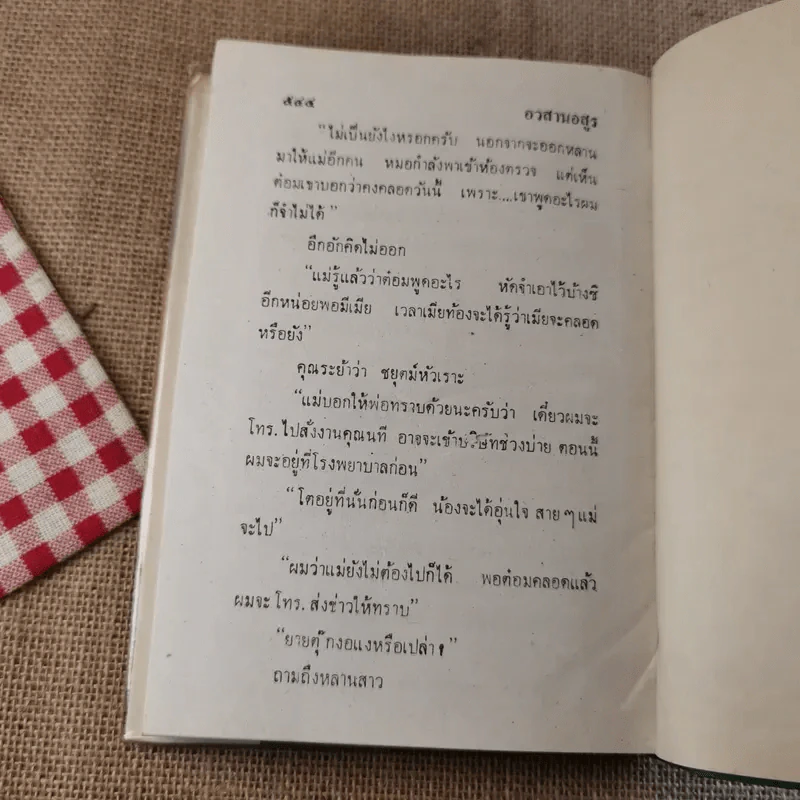 ๕๔๕ อวสานอสูร
“ไม่เป็นยังไงหรอกครับ นอกจากจะออกหลาน
มาให้แม่อีกคน หมอกำลังพาเข้าห้องตรวจ แต่เห็น
ต๋อมเขาบอกว่าคงคลอดวันนี้ เพราะ....เขาพูดอะไรผม
ก็จำไม่ได้”
อึกอักคิดไม่ออก
“แม่รู้แล้วว่าต๋อมพูดอะไร หัดจำเอาไว้บ้างซิ
อีกหน่อยพอมีเมีย เวลาเมียท้องจะได้รู้ว่าเมียจะคลอด
หรือยัง”
คุณระย้าว่า ชยุตม์หัวเราะ
“แม่บอกให้พ่อทราบด้วยนะครับว่า เดี๋ยวผมจะ
โทร. ไปสั่งงานคุณนที อาจจะเข้าบริษัทช่วงบ่าย ตอนนี้
ผมจะอยู่ที่โรงพยาบาลก่อน”
“โตอยู่ที่นั่นก่อนก็ดี น้องจะได้อุ่นใจ สาย ๆ แม่
จะไป”
“ผมว่าแม่ยังไม่ต้องไปก็ได้ พอต๋อมคลอดแล้ว
ผมจะ โทร. ส่งข่าวให้ทราบ”
“ยายตุ๊กงอแงหรือเปล่า?”
ถามถึงหลานสาว